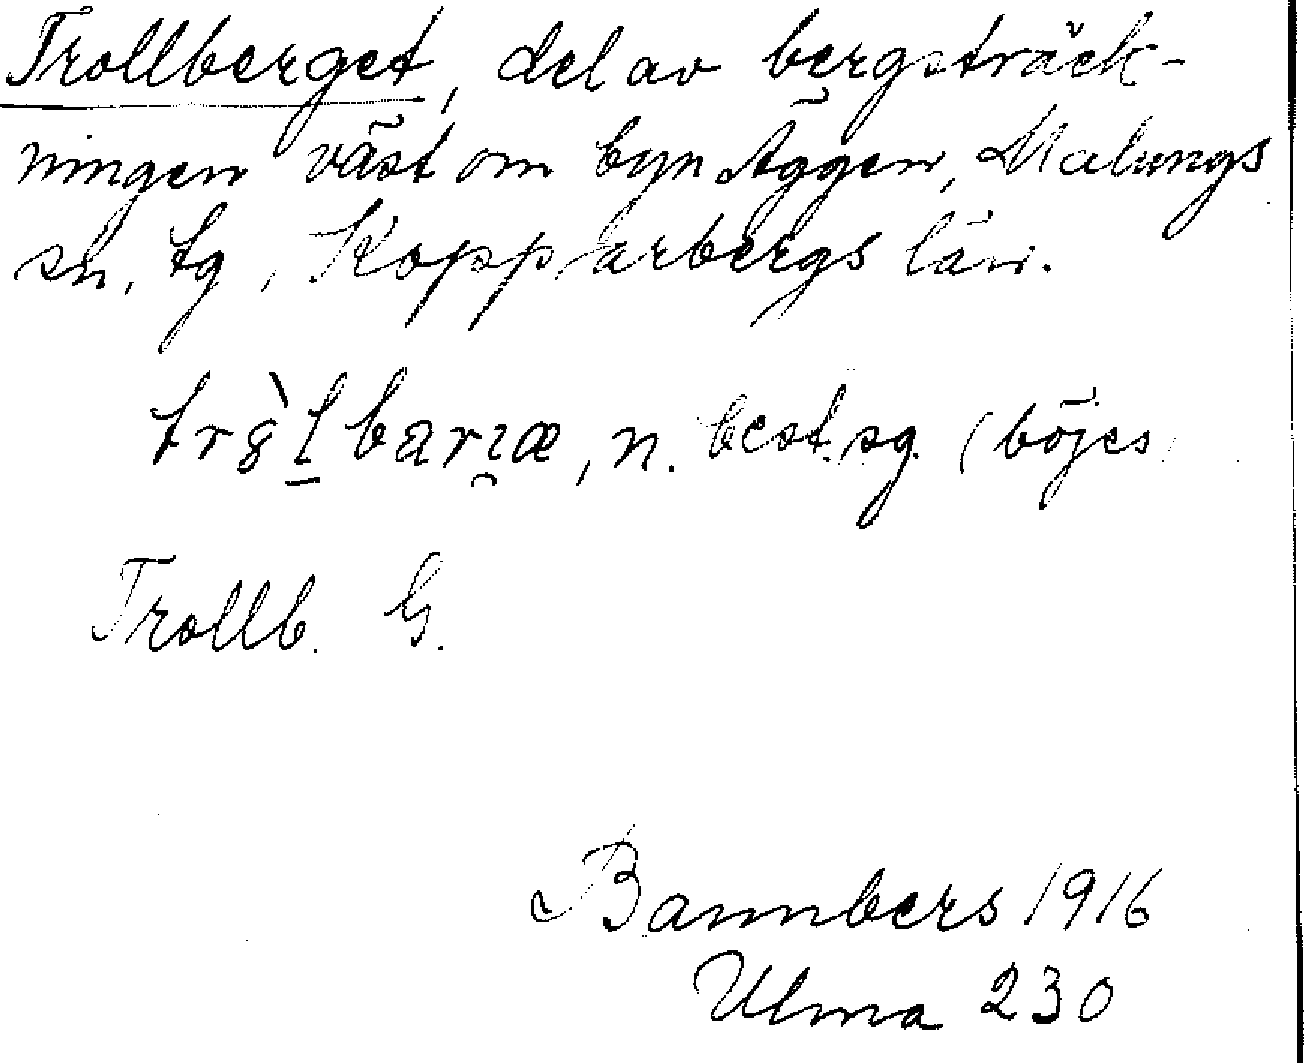 Trollberget, del av bergsträck-
ningen väst om byn Äggen, Malungs
sn, tg, Kopparbergs län.
trȣ̀l̠barɪ̯æ, n. best. sg. (böjes
Trollb. G.
Bannbers 1916
Ulma 230